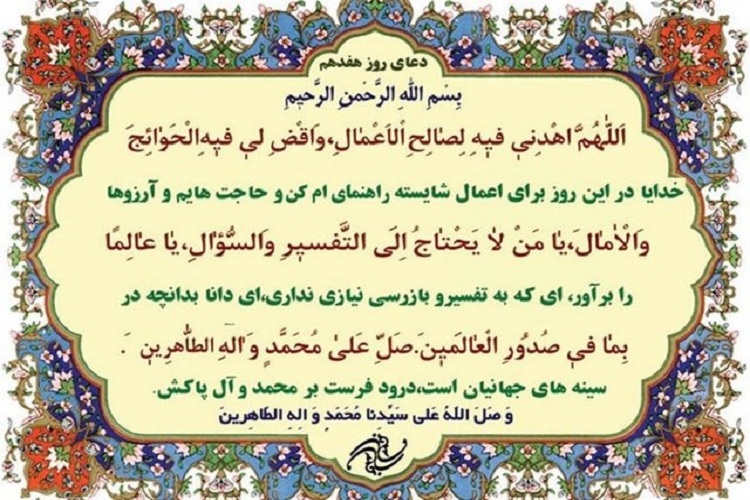 دعای روز هفدهم
بِسْمِ اللهِ الرَّحْمنِ الرَّحيمِ
اَللّهُمَّ اهْدِني فيهِ لِصالِحِ الْاَعْمالِ،وَاقْضِ لي فيهِ الْحَوائِجَ
خدایا در این روز برای اعمال شایسته راهنمای ام کن و حاجت هایم و آرزوها
وَالْاٰمالَ،يا مَنْ لا يَحْتاجُ اِلَى التَّفْسيرِ وَالسُّؤالِ،يا عالِمًا
را برآور، ای که به تفسیرو بازرسی نیازی نداری،ای دانا بدانچه در
بِما في صُدُورِ الْعالَمينَ.صَلِّ عَلىٰ مُحَمَّدٍ وَآلِهِ الطّاهِرينَ .
سینه های جهانیان است،درود فرست بر محمد و آل پاکش.
وَ صَلَ اللهُ عَلى سَيِّدِنا مُحَمَدٍ وَ الِهِ الطاهِرينَ